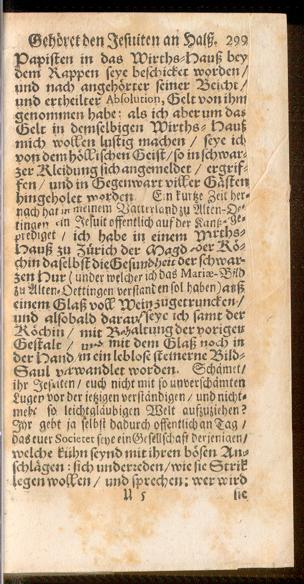 Gehöret den Jesuiten an Halß. 299
Papisten in das Wirths-Hauß bey
dem Rappen seye beschicket worden/
und nach angehörter seiner Beicht/
und ertheilter Absolution, Gelt von ihm
genommen habe: als ich aber um das
Gelt in demselbigen Wirths-Hauß
mich wollen lustig machen/ seye ich
von dem höllischen Geist/ so in schwar-
zer Kleidung sich angemeldet/ ergrif-
fen/ und in Gegenwart viller Gästen
hingeholet worden Ein kurtze Zeit her-
nach hat in meinem Vatterland zu Alten-Oe-
tingen ein Jesuit offentlich auf der Kantz-Ge-
prediget/ ich habe in einem Wirths-
Hauß zu Zürich der Magd oder Kö-
chin daselbst die Gesundheit der schwar-
zen Hur (under welcher ich das Mariæ-Bild
zu Alten-Oettingen verstanden sol haben) auß
einem Glaß voll Wein zugetruncken/
und alsobald darauf seye ich samt der
Köchin/ mit Behaltung der vorigen
Gestalt/ und mit dem Glaß noch in
der Hand in ein leblose steinerne Bild-
Saul verwandlet worden. Schämet
ihr Jesuiten/ euch nicht mit so unverschämten
Lugen vor der jetzigen verständigen/ und nicht-
mehr so leichtgläubigen Welt aufzuziehen?
Ihr gebt ja selbst dadurch offentlich an Tag/
das euer Societet seye ein Gesellschaft derjenigen/
welche kühn seynd mit ihren bösen An-
schlägen: sich underreden/ wie sie Strik
legen wollen/ und sprechen: wer wird
U 5 sie